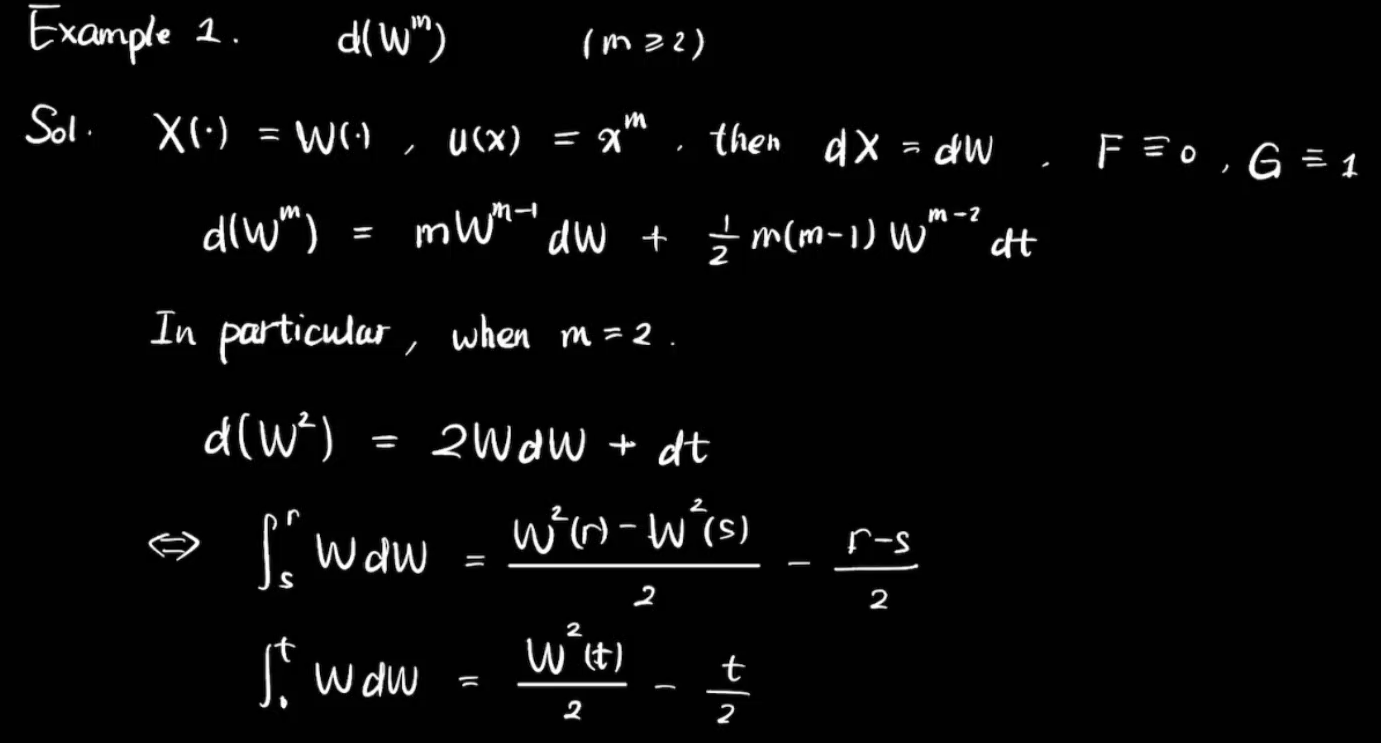 Example 1. d(Wᵐ) (m ≥ 2)
Sol. X(·) = W(·), u(x) = xᵐ. then dX = dW. F ≡ 0, G ≡ 1
d(Wᵐ) = mWᵐ⁻¹ dW + ½ m(m-1) Wᵐ⁻² dt
In particular, when m = 2.
d(W²) = 2WdW + dt
⇔ ∫ₛʳ WdW = (W²(r) - W²(s))/2 - (r-s)/2
∫₀ᵗ WdW = W²(t)/2 - t/2